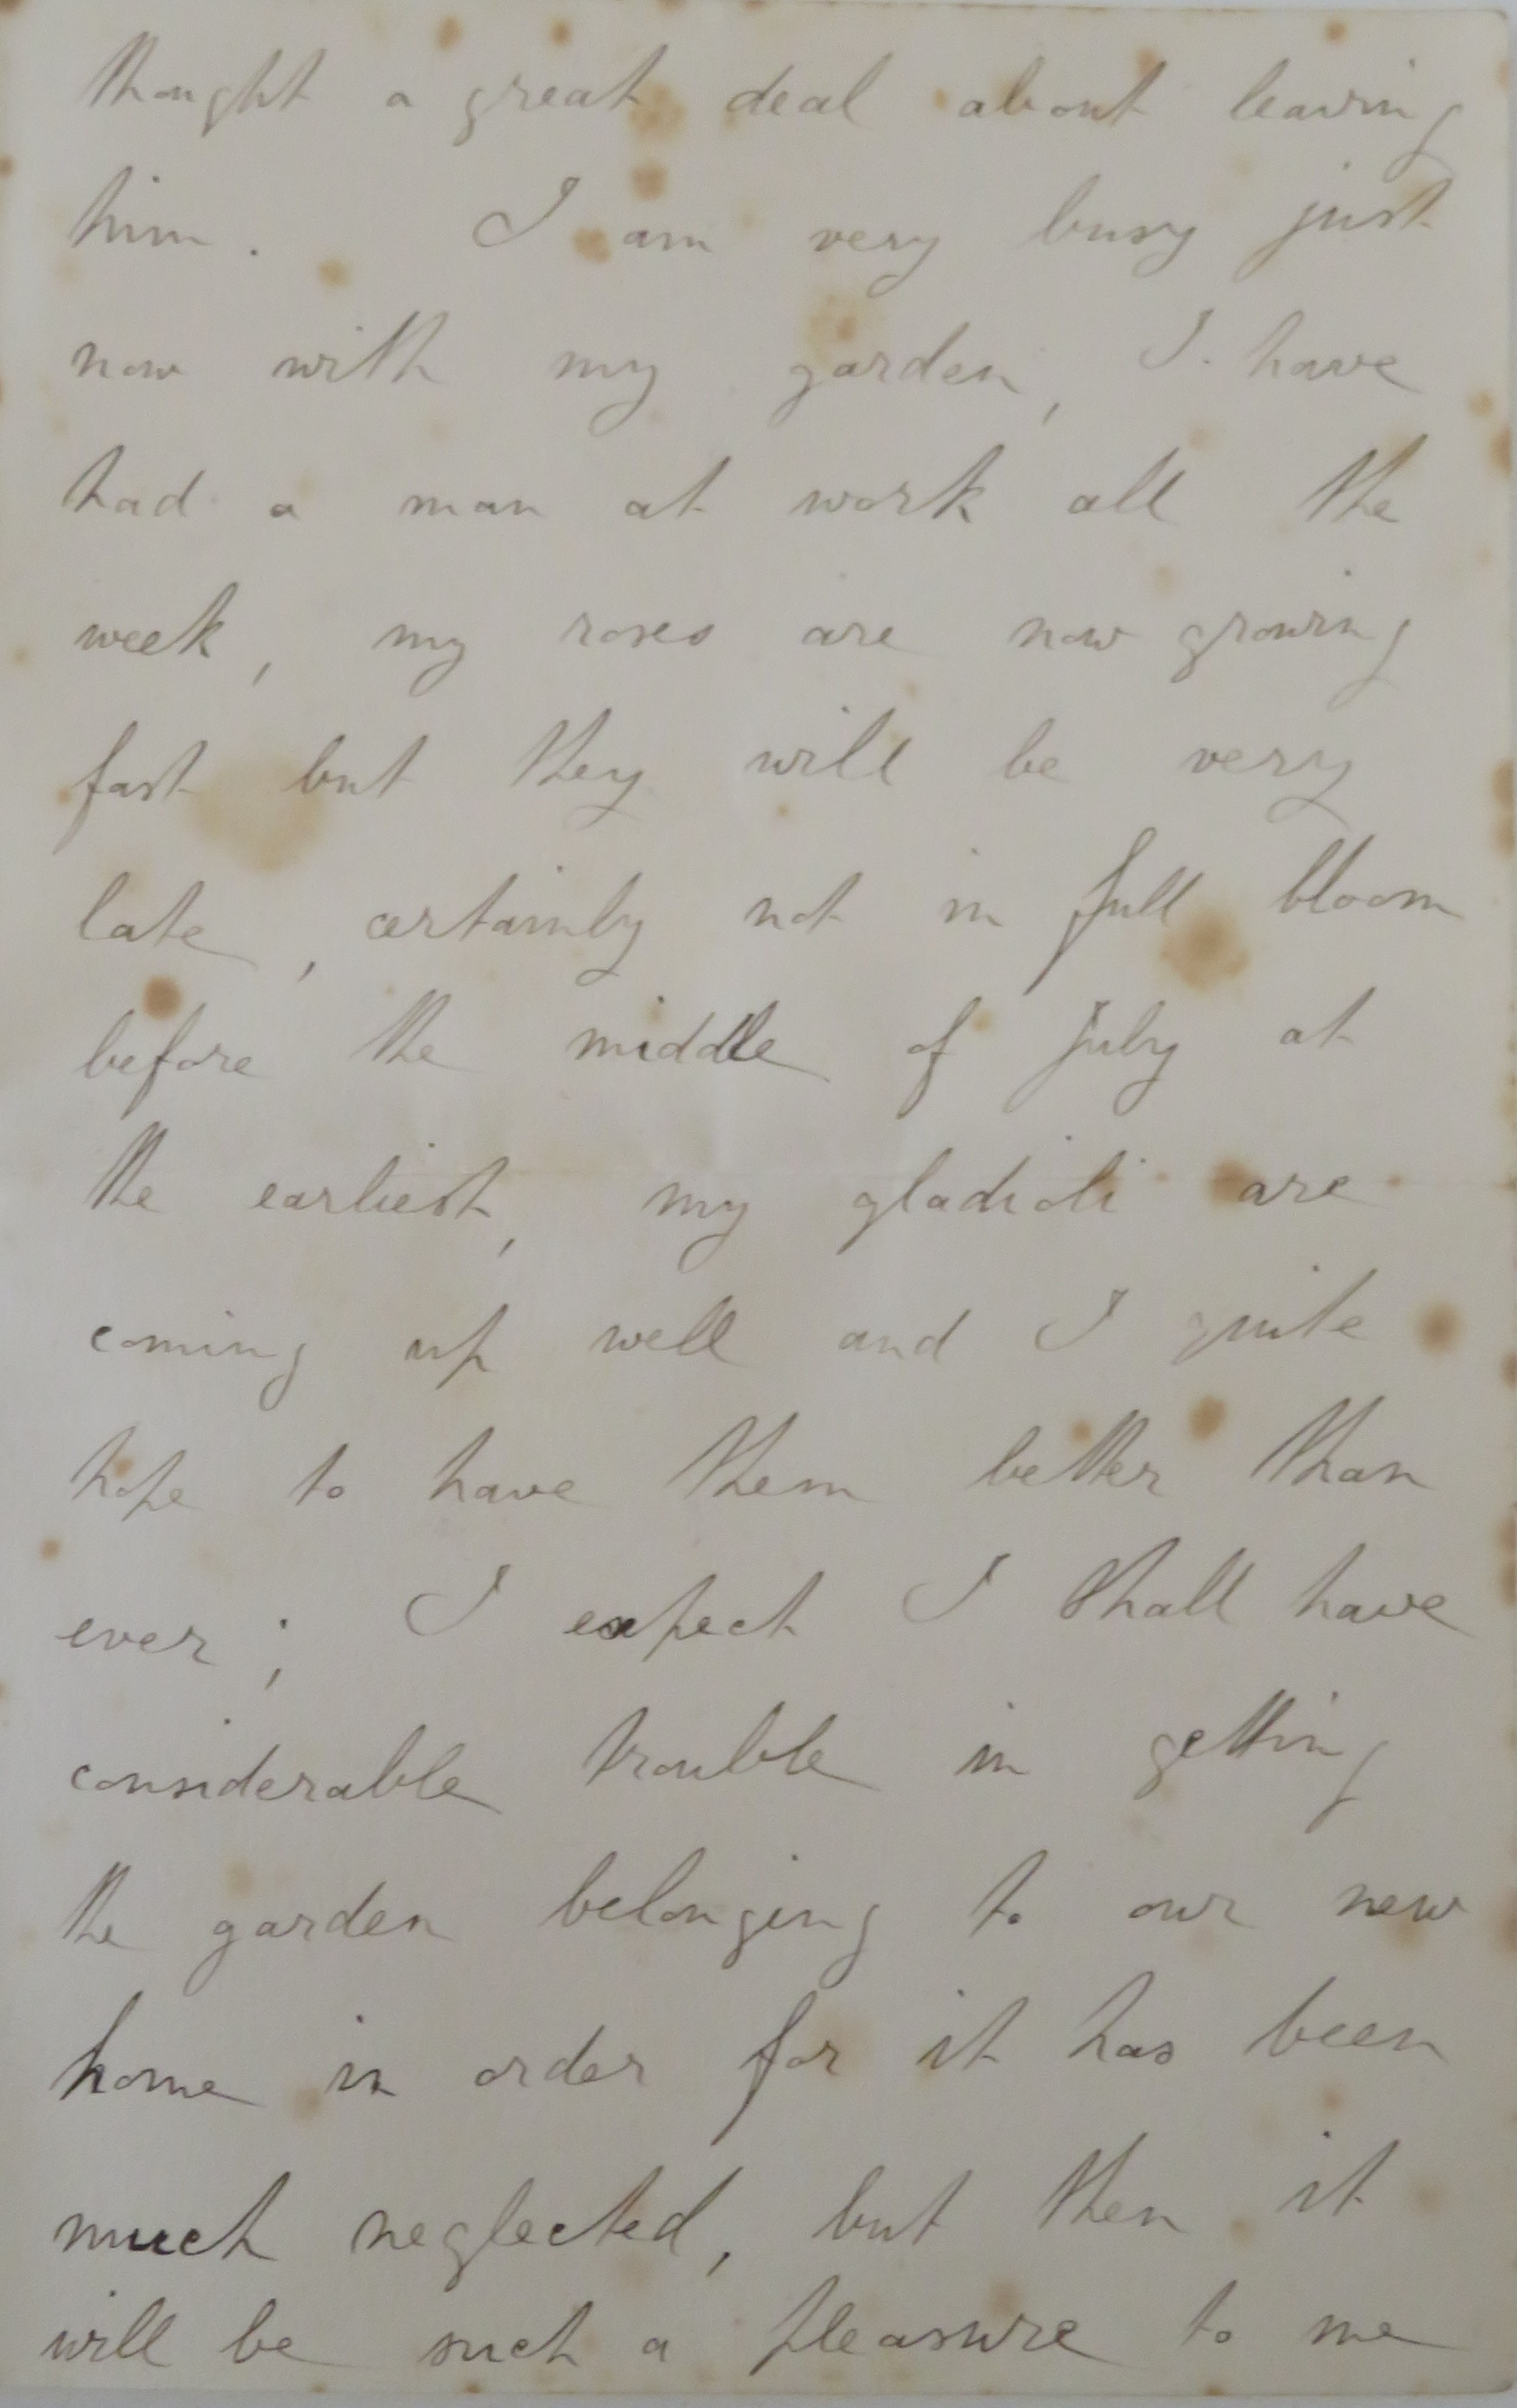 thought a great deal about leaving
him. I am very busy just
now with my garden, I have
had a man at work all the
week, my roses are now growing
fast but they will be very
late, certainly not in full bloom
before the middle of July at
the earliest, my gladioli are
coming up well and I quite
hope to have them better than
ever; I expect I shall have
considerable trouble in getting
the garden belonging to our new
home in order for it has been
much neglected, but then it
will be such a pleasure to me